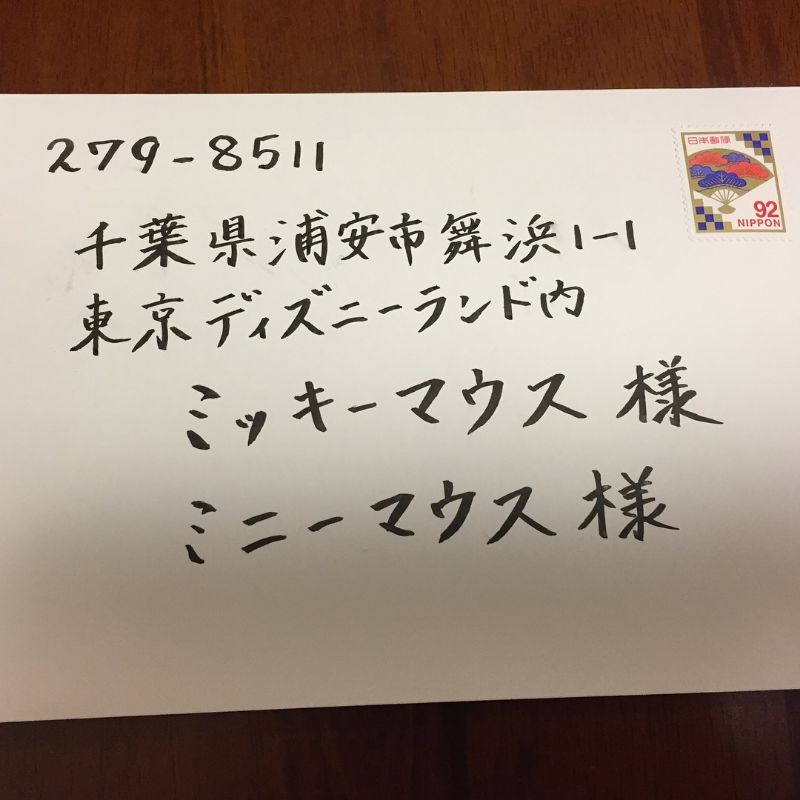 279-8511
千葉県浦安市舞浜1-1
東京ディズニーランド内
ミッキーマウス 様
ミニーマウス 様
日本郵便
92
NIPPON